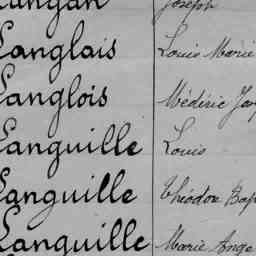 Langlais Louis Marie
Langlois Médéric
Languille Louis
Languille Théodore
Languille Marie Ange